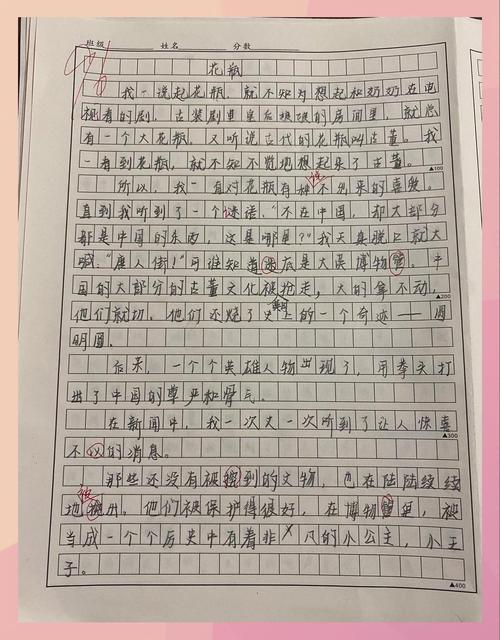 班级 姓名 分数
花瓶
我一说起花瓶,就不知为想起和奶奶在电
视看的剧,古装剧里皇后娘娘的房间里,就总
有一个大花瓶。又听说古代的花瓶叫古董。我
一看到花瓶,就不知不觉地想起来了古董。
▲100
所以,我一直对花瓶有种说不出来的喜爱。
直到我听到了一个谜语:“不在中国,却大部分
都是中国的东西,这是哪里?”我天真脱口就大
喊:“唐人街!”可谁知道谜底是大英博物馆。中
国的大部分的古董文化被抢走,大的拿不动,
▲200
他们就切。他们还烧了史上的一个奇迹——圆
明园。
后来,一个个英雄人物出现了,用拳头打
出了中国的尊严和骨气。
在新闻中,我一次又一次听到了让人惊喜
▲300
不已的消息。
那些还没有被挖到的文物,也在陆陆续续
地被挖出。他们被保护得很好,在博物馆里,被
当成一个个历史中有着非凡的小公主,小王
子。
▲400